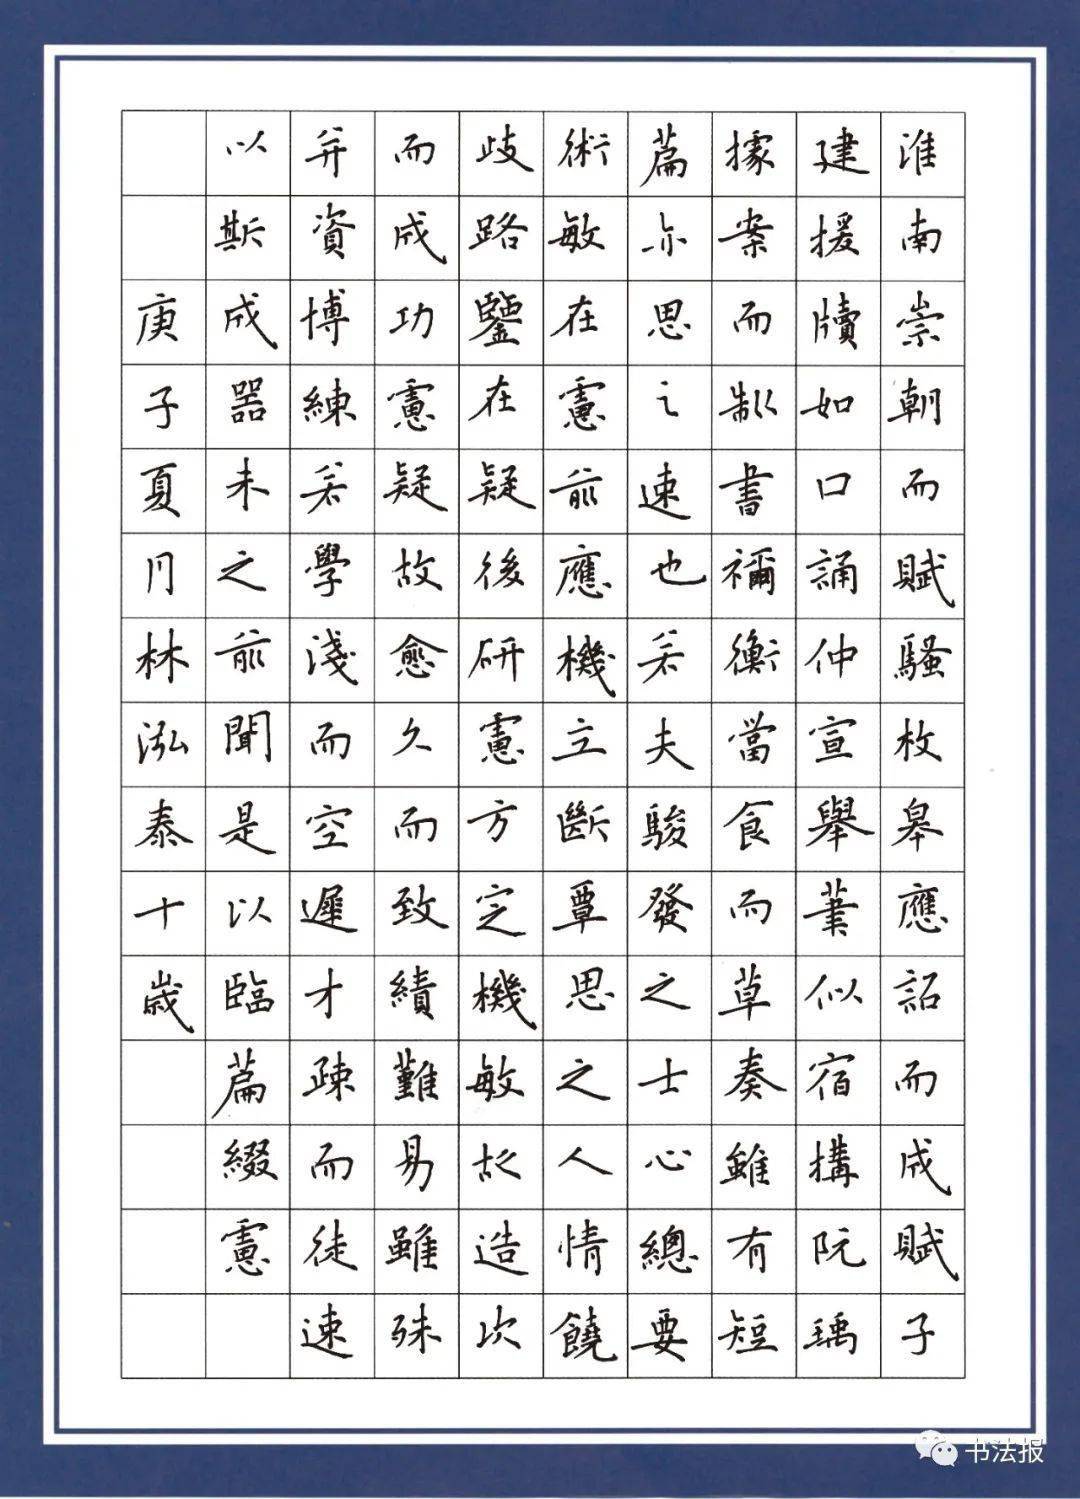 淮南崇朝而賦騷枚皋應詔而成賦子
建援牘如口誦仲宣舉筆似宿構阮瑀
據案而制書禰衡當食而草奏雖有短
篇亦思之速也若夫駿發之士心總要
術敏在慮前應機立斷覃思之人情饒
歧路鑒在疑後研慮方定機敏故造次
而成功慮疑故愈久而致績難易雖殊
并資博練若學淺而空遲才疎而徒速
以斯成器未之前聞是以臨篇綴慮
庚子夏月林泓泰十歲
书法报